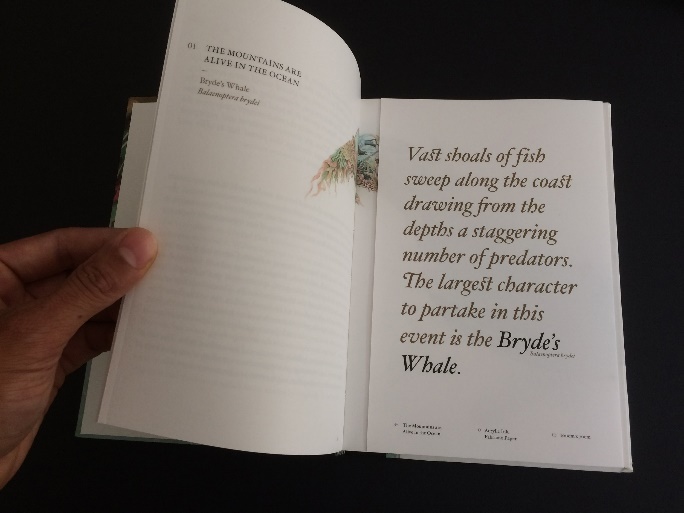 01 THE MOUNTAINS ARE
ALIVE IN THE OCEAN
–
Bryde's Whale
Balaenoptera brydei
Vast shoals of fish
sweep along the coast
drawing from the
depths a staggering
number of predators.
The largest character
to partake in this
event is the Bryde's
Balaenoptera brydei
Whale.
The Mountains are
Alive in the Ocean
Acrylic Ink,